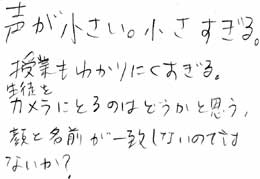 声が小さい。小さすぎる。
授業もわかりにくすぎる。
生徒を
カメラにとるのはどうかと思う,
顔と名前が一致しないのでは
ないか?